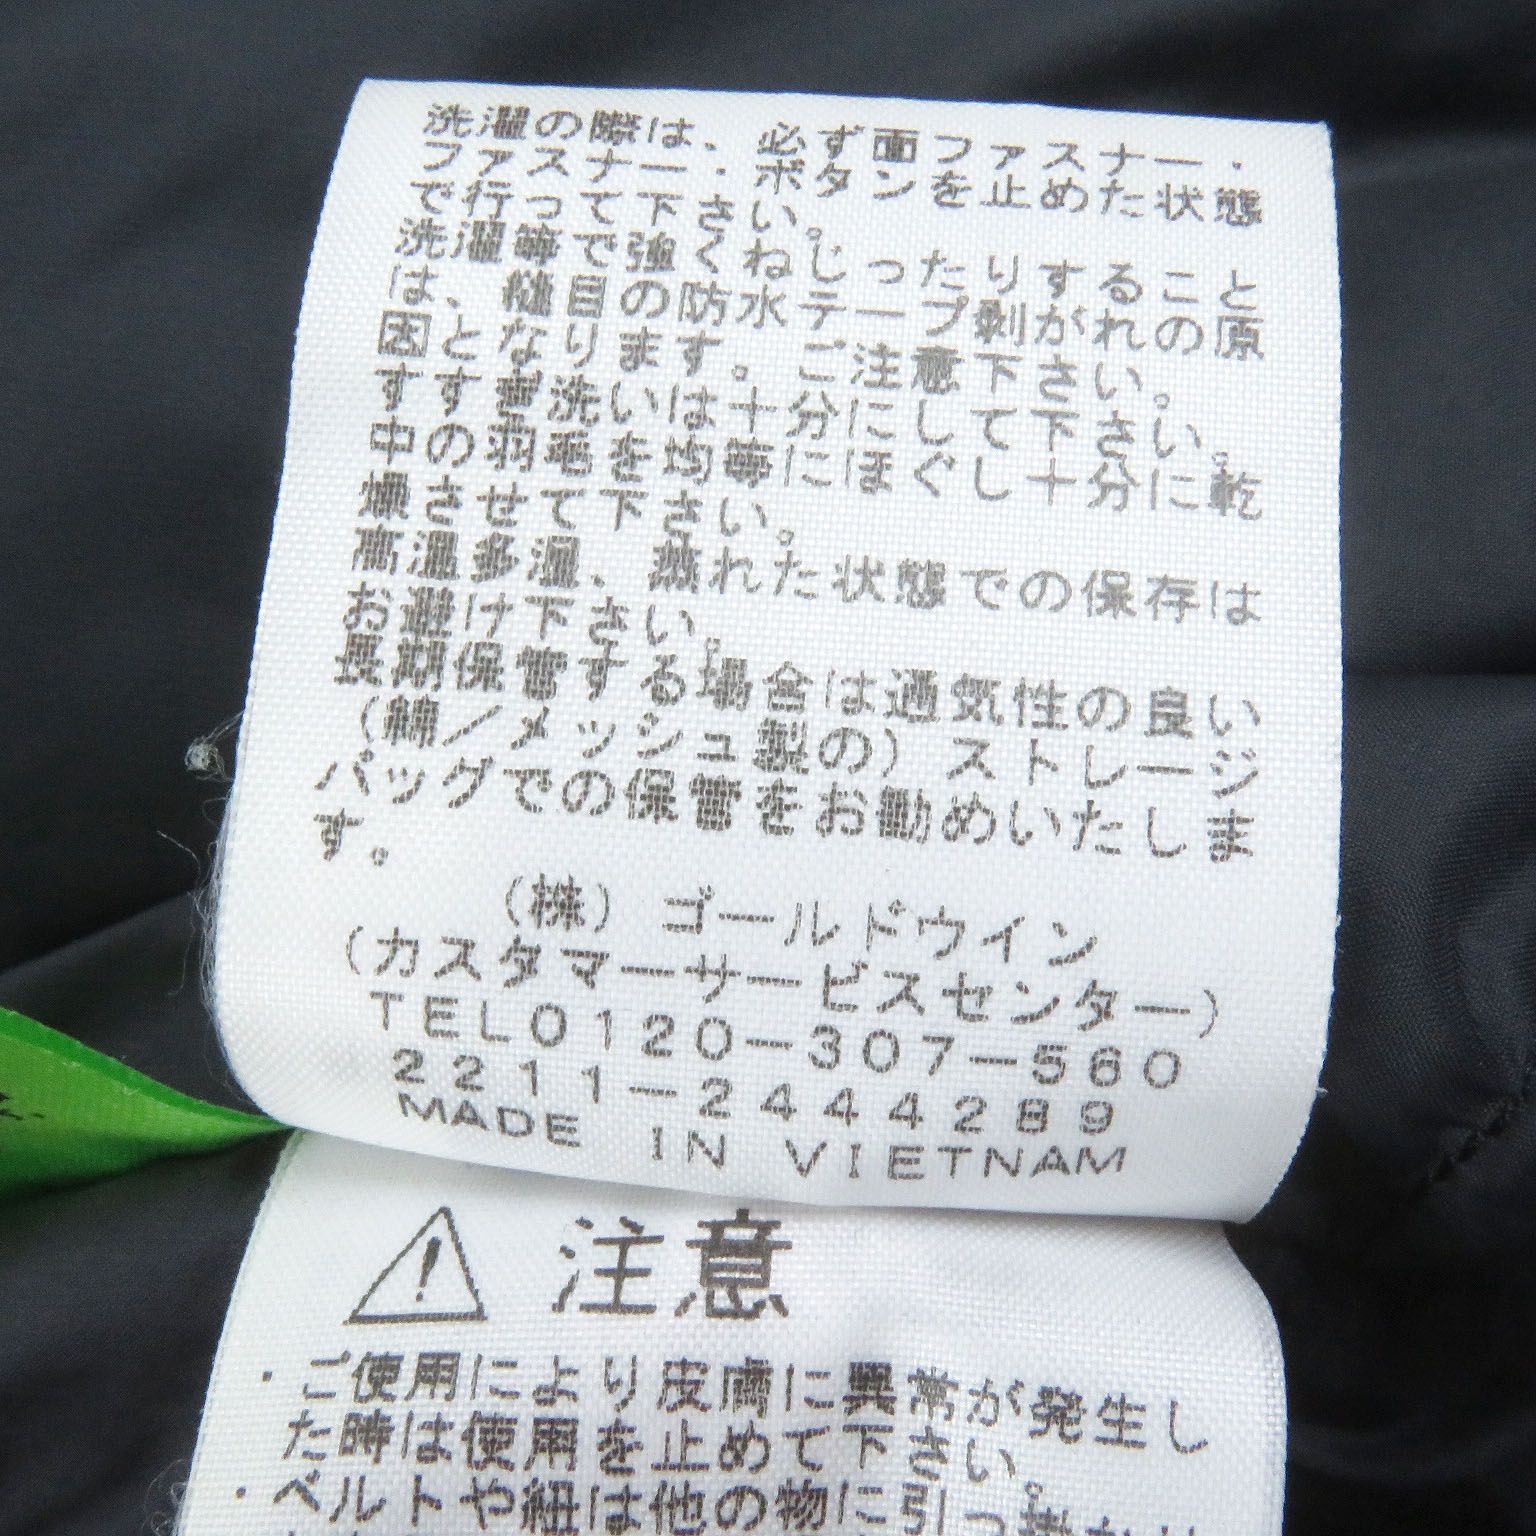 洗濯の際は、必ず面ファスナー・
ファスナー・ボタンを止めた状態
で行って下さい。
洗濯等で強くねじったりすること
は、縫目の防水テープ剥がれの原
因となります。ご注意下さい。
すすぎ洗いは十分にして下さい。
中の羽毛を均等にほぐし十分に乾
燥させて下さい。
高温多湿、蒸れた状態での保存は
お避け下さい。
長期保管する場合は通気性の良い
（綿／メッシュ製の）ストレージ
バッグでの保管をお勧めいたしま
す。
（株）ゴールドウイン
（カスタマーサービスセンター）
TEL0120－307－560
2211－2444289
MADE IN VIETNAM
注意
・ご使用により皮膚に異常が発生し
た時は使用を止めて下さい。
・ベルトや紐は他の物に引っ